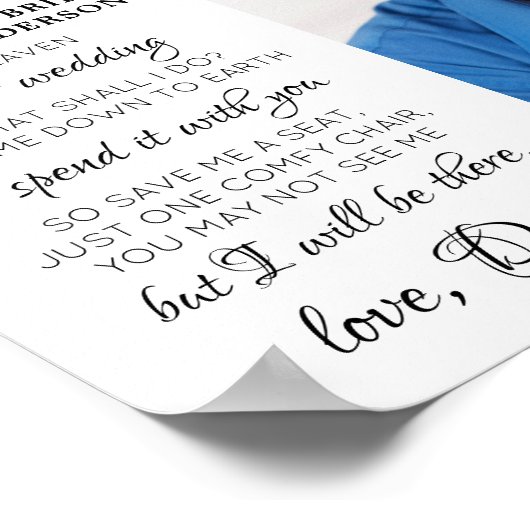 wedding
SHALL I DO?
DOWN TO EARTH
spend it with you
SO SAVE ME A SEAT,
JUST ONE COMFY CHAIR.
YOU MAY NOT SEE ME
but I will be there.
love,